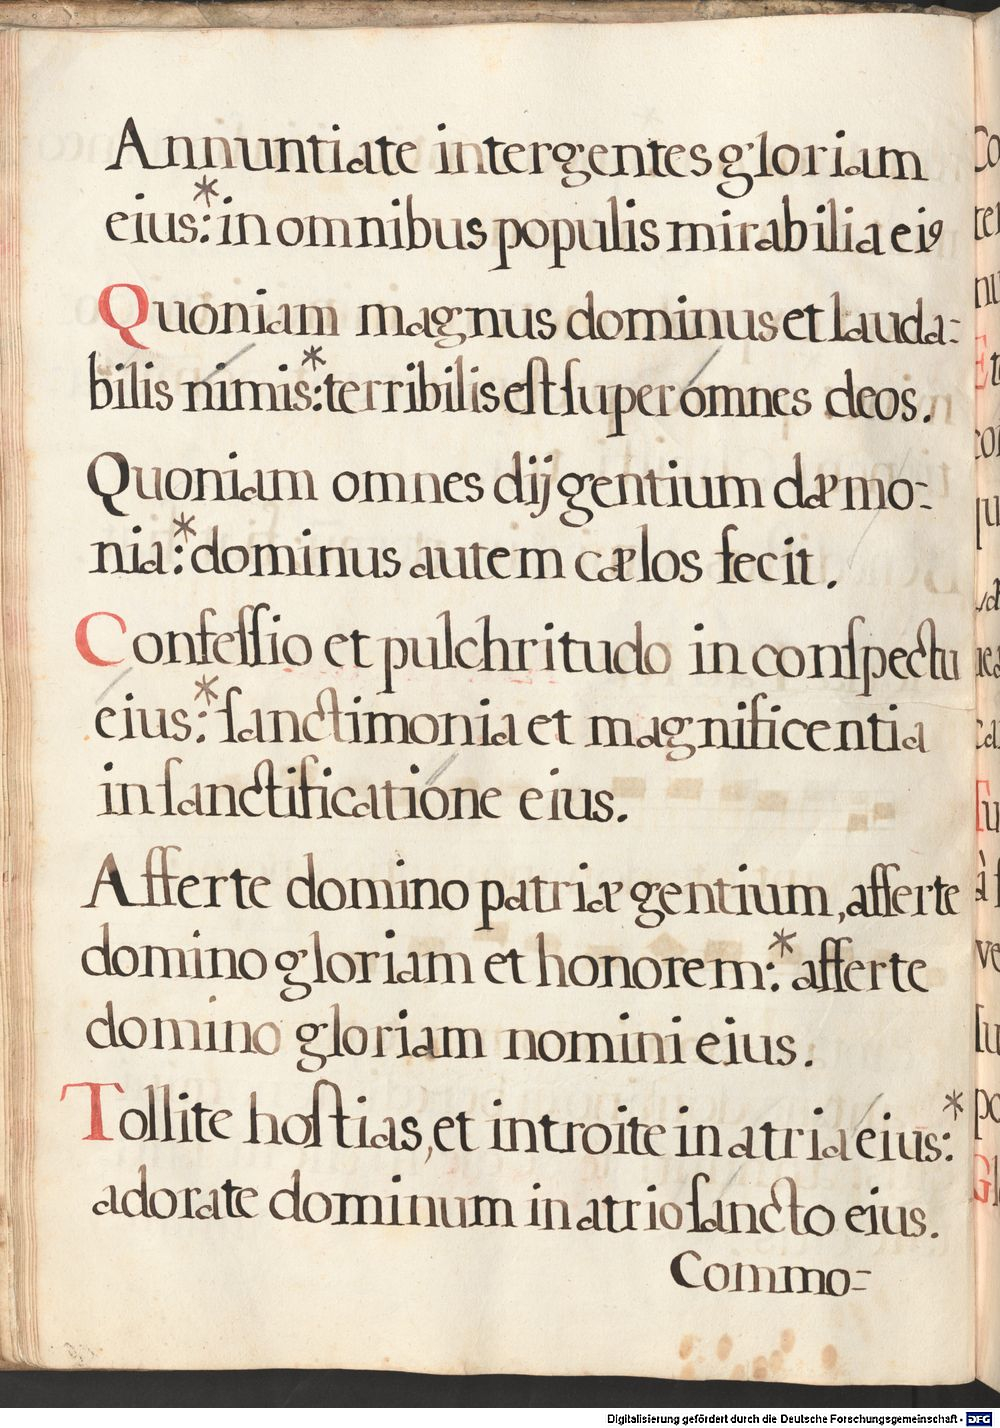 Annuntiate inter gentes gloriam
eius:* in omnibus populis mirabilia eiꝰ
Quoniam magnus dominus et lauda-
bilis nimis:* terribilis est ſuper omnes deos.
Quoniam omnes dij gentium dæmo-
nia:* dominus autem cælos fecit.
Confeſſio et pulchritudo in conſpectu
eius:* ſanctimonia et magnificentia
in ſanctificatione eius.
Afferte domino patriæ gentium, afferte
domino gloriam et honorem:* afferte
domino gloriam nomini eius.
Tollite hoſtias, et introite in atria eius:*
adorate dominum in atrio ſancto eius.
Commo-
Digitalisierung gefördert durch die Deutsche Forschungsgemeinschaft - DFG